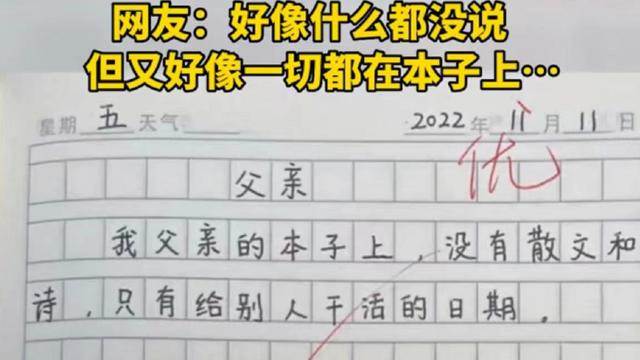 网友：好像什么都没说
但又好像一切都在本子上…
星期 五 天气 2022 年 11 月 11 日
优
父亲
我父亲的本子上，没有散文和
诗，只有给别人干活的日期．